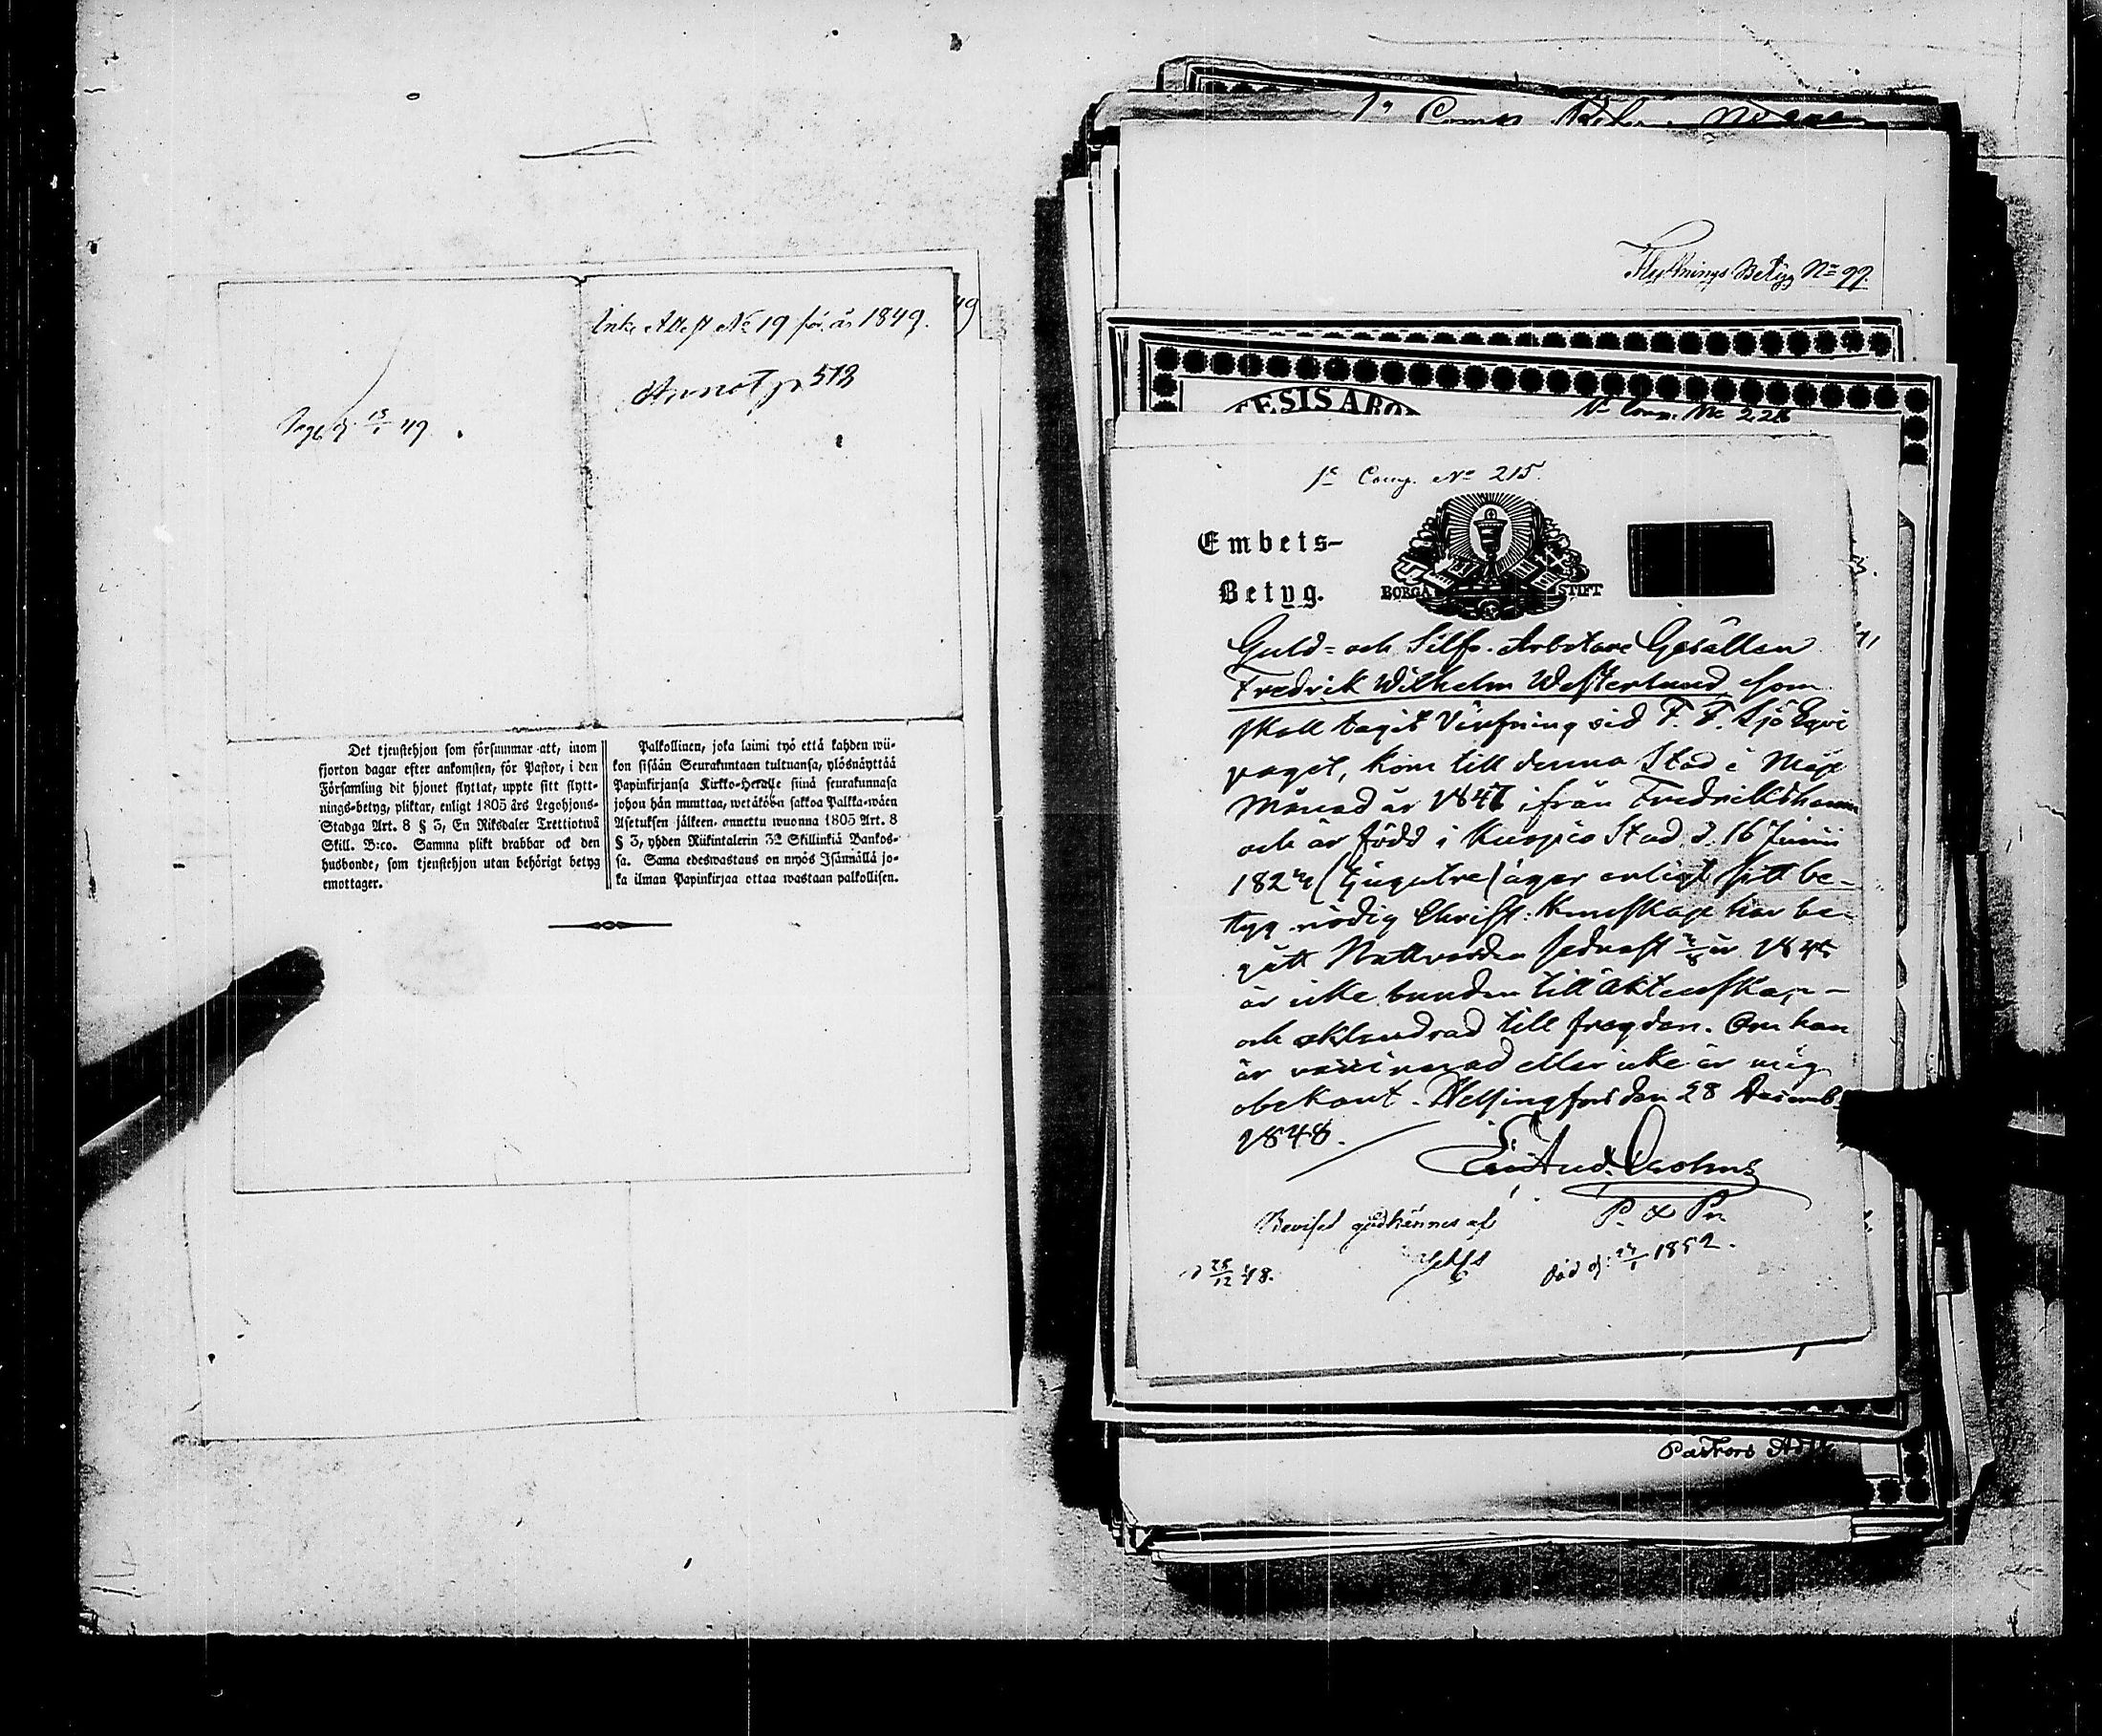 Ink. Attest No 19 för år 1849.
Annot p 512
13/1 49
Det tjenstehjon som försummar att, inom
fjorton dagar efter ankomsten, för Pastor, i den
Församling dit hjonet flyttat, uppte sitt flytt-
nings-betyg, pliktar, enligt 1805 års Legohjons-
Stadga Art. 8 § 3, En Riksdaler Trettiotwå
Skill. B:co. Samma plikt drabbar ock den
husbonde, som tjenstehjon utan behörigt betyg
emottager.
Palkollinen, joka laimi lyö että kahden wii-
kon sisään Seurakuntaan tultuansa, ylösnäyttää
Papinkirjansa Kirkko-Herralle siinä seurakunnasa
johon hän muuttaa, wetäköön sakkoa Palkka-wäen
Asetuksen jälkeen, annettu wuonna 1805 Art. 8
§ 3, yhden Riikintalerin 32 Skillinkiä Bankos-
sa. Sama edeswastaus on myös Isännällä jo-
ka ilman Papinkirjaa ottaa wastaan palkollisen.
1a Comp.
Flyttnings Betyg No 99.
CESIS ABO
Comp. No 228
1a Comp. No 215.
Embets-
Betyg.
BORGÅ STIFT
Guld- och Silfv. Arbetare Gesällen
Fredrik Wilhelm Westerlund som
skall tagit Värfning vid F. F. Sjö Eqvi
paget, kom till denna Stad i Maji
Månad år 1847 ifrån Fredrikshamn
och är född i Kuopio Stad d. 16 Junii
182 (tjugutre) äger enligt sitt be-
tyg nödig Christ. Kunskap har be-
gått Nattvarden sednast år 184
är icke bunden till Äktenskap-
och oklandrad till frägden. Om han
är vaccinerad eller icke är mig
obekant. Helsingfors den 28 Decemb.
1848.
P. & Pr.
Beviset godkännes af
d 28/12 48.
död d. 24/1 1852.
Pastors